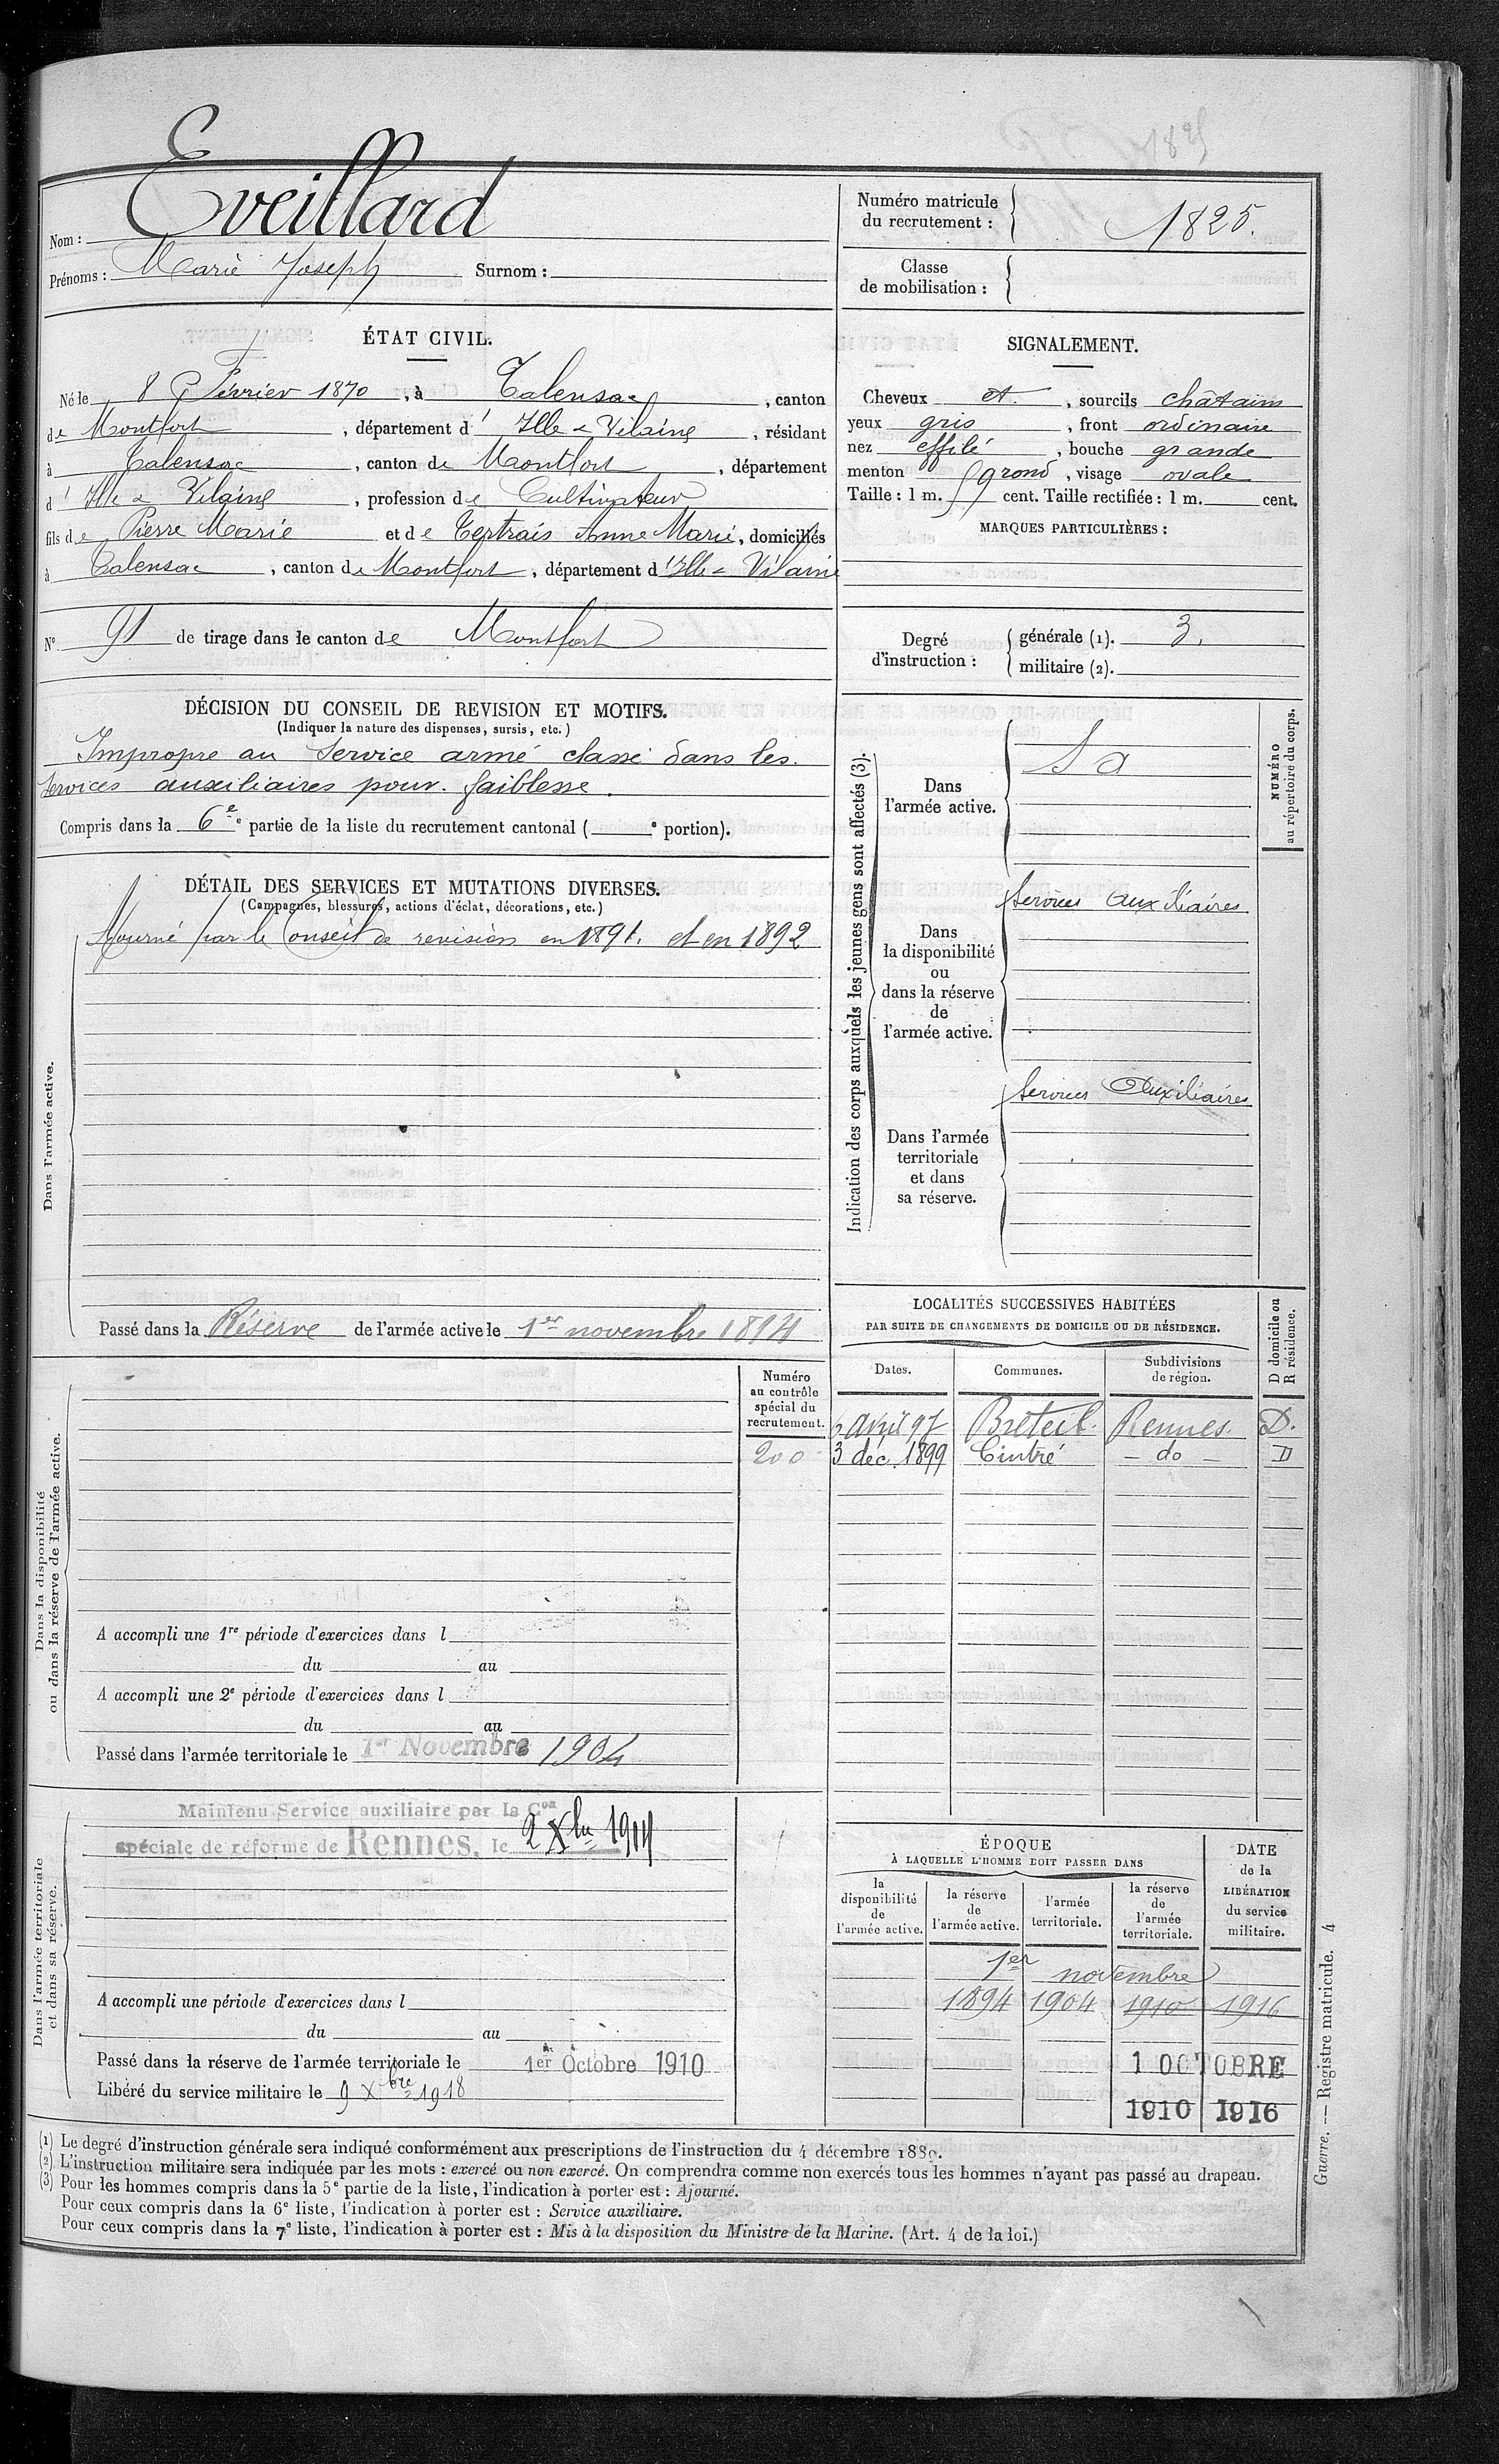 Nom : Eveillard
Prénoms : Marie Joseph Surnom :
Numéro matricule du recrutement : 1825.
Classe de mobilisation :
ÉTAT CIVIL.
Né le 8 Février 1870, à Talensac, canton
de Montfort, département d' Ille & Vilaine, résidant
à Talensac, canton de Montfort, département
d' Ille & Vilaine, profession de Cultivateur
fils de Pierre Marie et de Tertrais Anne Marie, domiciliés
à Talensac, canton de Montfort, département d'Ille & Vilaine
N° 91 de tirage dans le canton de Montfort
SIGNALEMENT.
Cheveux et, sourcils châtains
yeux gris, front ordinaire
nez effilé, bouche grande
menton rond, visage ovale
Taille : 1 m. cent. Taille rectifiée : 1 m. cent.
MARQUES PARTICULIÈRES :
Degré d'instruction :
générale (1). 3.
militaire (2).
DÉCISION DU CONSEIL DE REVISION ET MOTIFS.
(Indiquer la nature des dispenses, sursis, etc.)
Impropre au Service armé classé dans les
Services auxiliaires pour faiblesse.
Compris dans la 6e e partie de la liste du recrutement cantonal ( e portion).
DÉTAIL DES SERVICES ET MUTATIONS DIVERSES.
(Campagnes, blessures, actions d'éclat, décorations, etc.)
Dans l'armée active.
Ajourné par le Conseil de revision en 1891. et en 1892
Passé dans la Réserve de l'armée active le 1er novembre 1894
Indication des corps auxquels les jeunes gens sont affectés (3).
NUMÉRO
au répertoire du corps.
Dans
l'armée active.
Dans
la disponibilité
ou
dans la réserve
de
l'armée active.
Services auxiliaires
Dans l'armée
territoriale
et dans
sa réserve.
Services Auxiliaires
LOCALITÉS SUCCESSIVES HABITÉES
PAR SUITE DE CHANGEMENTS DE DOMICILE OU DE RÉSIDENCE.
D domicile ou
R résidence.
Dates. Communes. Subdivisions de région.
6 avril 97 Breteil Rennes D.
3 dec. 1899 Cintré – do – D
Dans la disponibilité
ou dans la réserve de l'armée active.
Numéro
au contrôle
spécial du
recrutement.
200
A accompli une 1re période d'exercices dans l
du au
A accompli une 2e période d'exercices dans l
du au
Passé dans l'armée territoriale le 1er Novembre 1904
Dans l'armée territoriale
et dans sa réserve.
Maintenu Service auxiliaire par la Con
spéciale de réforme de Rennes, le 2 Xbre 1914
A accompli une période d'exercices dans l
du au
Passé dans la réserve de l'armée territoriale le 1er Octobre 1910
Libéré du service militaire le 9 Xbre 1918
ÉPOQUE
À LAQUELLE L'HOMME DOIT PASSER DANS
DATE
de la
LIBÉRATION
du service
militaire.
la
disponibilité
de
l'armée active.
la réserve
de
l'armée active.
l'armée
territoriale.
la réserve
de
l'armée
territoriale.
1er novembre
1894 1904 1910 1916
1 OCTOBRE
1910 1916
(1) Le degré d'instruction générale sera indiqué conformément aux prescriptions de l'instruction du 4 décembre 1889.
(2) L'instruction militaire sera indiquée par les mots : exercé ou non exercé. On comprendra comme non exercés tous les hommes n'ayant pas passé au drapeau.
(3) Pour les hommes compris dans la 5e partie de la liste, l'indication à porter est : Ajourné.
Pour ceux compris dans la 6e liste, l'indication à porter est : Service auxiliaire.
Pour ceux compris dans la 7e liste, l'indication à porter est : Mis à la disposition du Ministre de la Marine. (Art. 4 de la loi.)
Guerre. — Registre matricule. 4